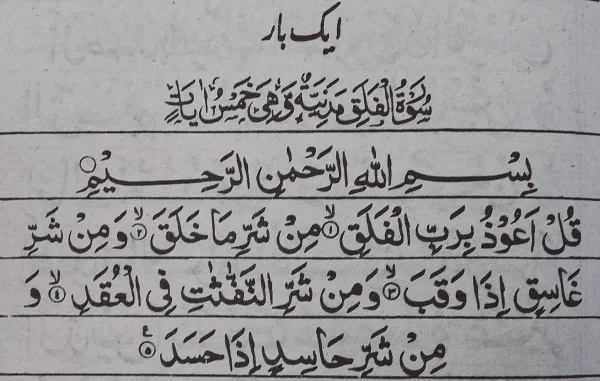 ایک بار
سُوْرَةُ الْفَلَقِ مَدَنِيَّةٌ وَّهِيَ خَمْسُ اٰيَاتٍ
بِسْمِ اللهِ الرَّحْمٰنِ الرَّحِيْمِ ○
قُلْ اَعُوْذُ بِرَبِّ الْفَلَقِ ۙ﴿۱﴾ مِنْ شَرِّ مَا خَلَقَ ۙ﴿۲﴾ وَمِنْ شَرِّ
غَاسِقٍ اِذَا وَقَبَ ۙ﴿۳﴾ وَمِنْ شَرِّ النَّفّٰثٰتِ فِى الْعُقَدِ ۙ﴿۴﴾ وَ
مِنْ شَرِّ حَاسِدٍ اِذَا حَسَدَ ﴿۵﴾ ع